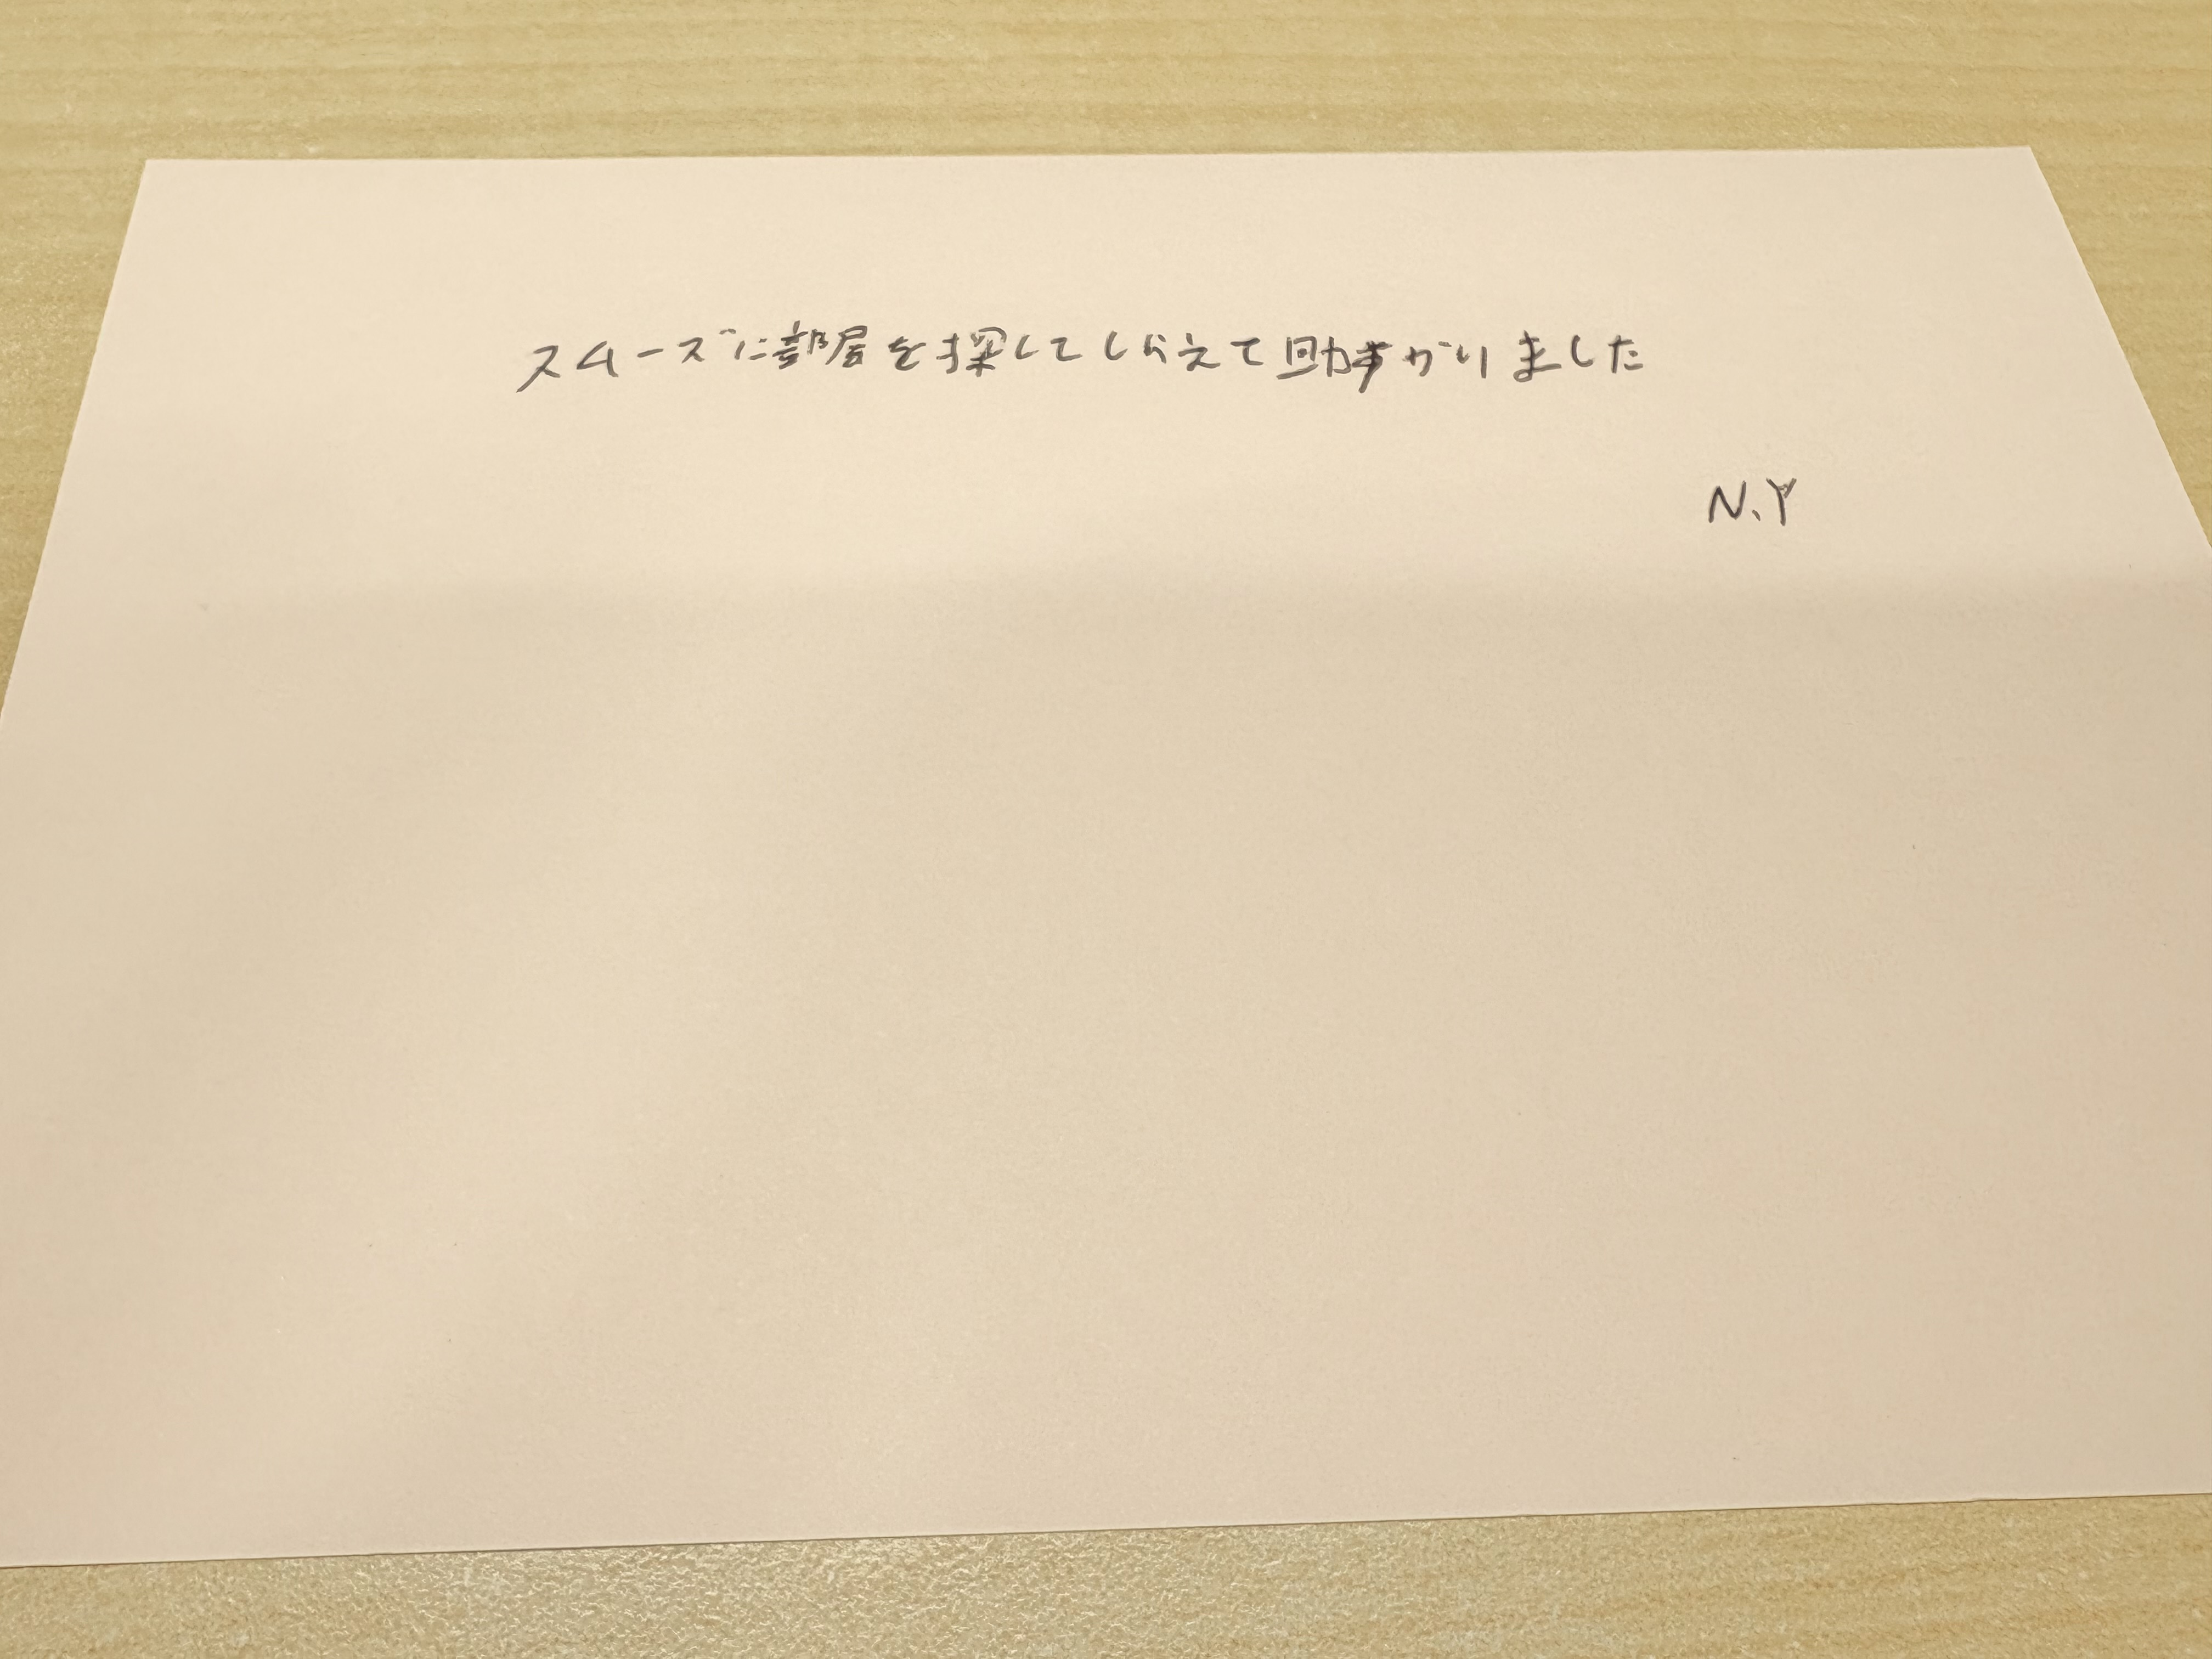 スムーズに部屋を探してしらえて助かりました
N.Y